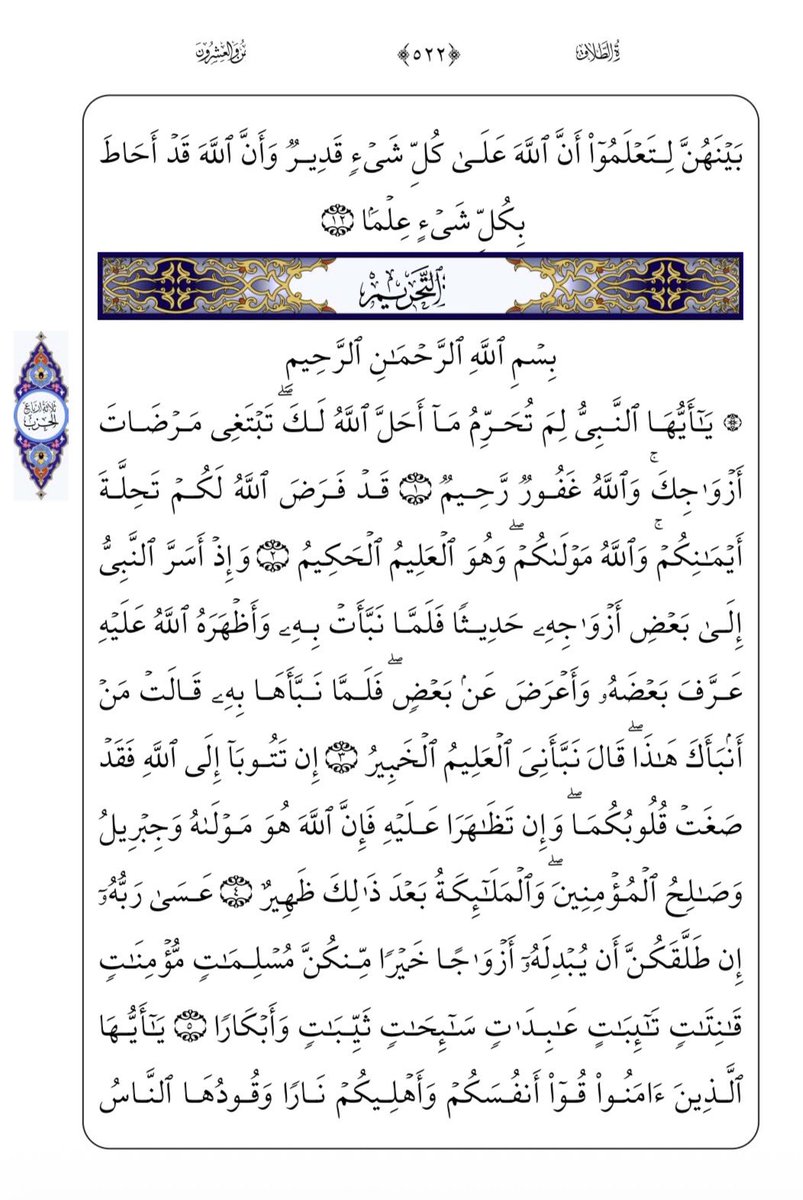 ةُ الطَّلَاقِ ﴿٥٢٢﴾ نُ وَالعِشْرُونَ
بَيْنَهُنَّ لِتَعْلَمُوٓا۟ أَنَّ ٱللَّهَ عَلَىٰ كُلِّ شَىْءٍۢ قَدِيرٌۭ وَأَنَّ ٱللَّهَ قَدْ أَحَاطَ
بِكُلِّ شَىْءٍ عِلْمًۢا ١٢
التَّحْرِيم
بِسْمِ ٱللَّهِ ٱلرَّحْمَـٰنِ ٱلرَّحِيمِ
۞ يَـٰٓأَيُّهَا ٱلنَّبِىُّ لِمَ تُحَرِّمُ مَآ أَحَلَّ ٱللَّهُ لَكَ ۖ تَبْتَغِى مَرْضَاتَ
أَزْوَٰجِكَ ۚ وَٱللَّهُ غَفُورٌۭ رَّحِيمٌۭ ١ قَدْ فَرَضَ ٱللَّهُ لَكُمْ تَحِلَّةَ
أَيْمَـٰنِكُمْ ۚ وَٱللَّهُ مَوْلَىٰكُمْ ۖ وَهُوَ ٱلْعَلِيمُ ٱلْحَكِيمُ ٢ وَإِذْ أَسَرَّ ٱلنَّبِىُّ
إِلَىٰ بَعْضِ أَزْوَٰجِهِۦ حَدِيثًۭا فَلَمَّا نَبَّأَتْ بِهِۦ وَأَظْهَرَهُ ٱللَّهُ عَلَيْهِ
عَرَّفَ بَعْضَهُۥ وَأَعْرَضَ عَنۢ بَعْضٍۢ ۖ فَلَمَّا نَبَّأَهَا بِهِۦ قَالَتْ مَنْ
أَنۢبَأَكَ هَـٰذَا ۖ قَالَ نَبَّأَنِىَ ٱلْعَلِيمُ ٱلْخَبِيرُ ٣ إِن تَتُوبَآ إِلَى ٱللَّهِ فَقَدْ
صَغَتْ قُلُوبُكُمَا ۖ وَإِن تَظَـٰهَرَا عَلَيْهِ فَإِنَّ ٱللَّهَ هُوَ مَوْلَىٰهُ وَجِبْرِيلُ
وَصَـٰلِحُ ٱلْمُؤْمِنِينَ ۖ وَٱلْمَلَـٰٓئِكَةُ بَعْدَ ذَٰلِكَ ظَهِيرٌ ٤ عَسَىٰ رَبُّهُۥٓ
إِن طَلَّقَكُنَّ أَن يُبْدِلَهُۥٓ أَزْوَٰجًا خَيْرًۭا مِّنكُنَّ مُسْلِمَـٰتٍۢ مُّؤْمِنَـٰتٍۢ
قَـٰنِتَـٰتٍۢ تَـٰٓئِبَـٰتٍ عَـٰبِدَٰتٍۢ سَـٰٓئِحَـٰتٍۢ ثَيِّبَـٰتٍۢ وَأَبْكَارًۭا ٥ يَـٰٓأَيُّهَا
ٱلَّذِينَ ءَامَنُوا۟ قُوٓا۟ أَنفُسَكُمْ وَأَهْلِيكُمْ نَارًۭا وَقُودُهَا ٱلنَّاسُ
ثلاثة أرباع
الحزب